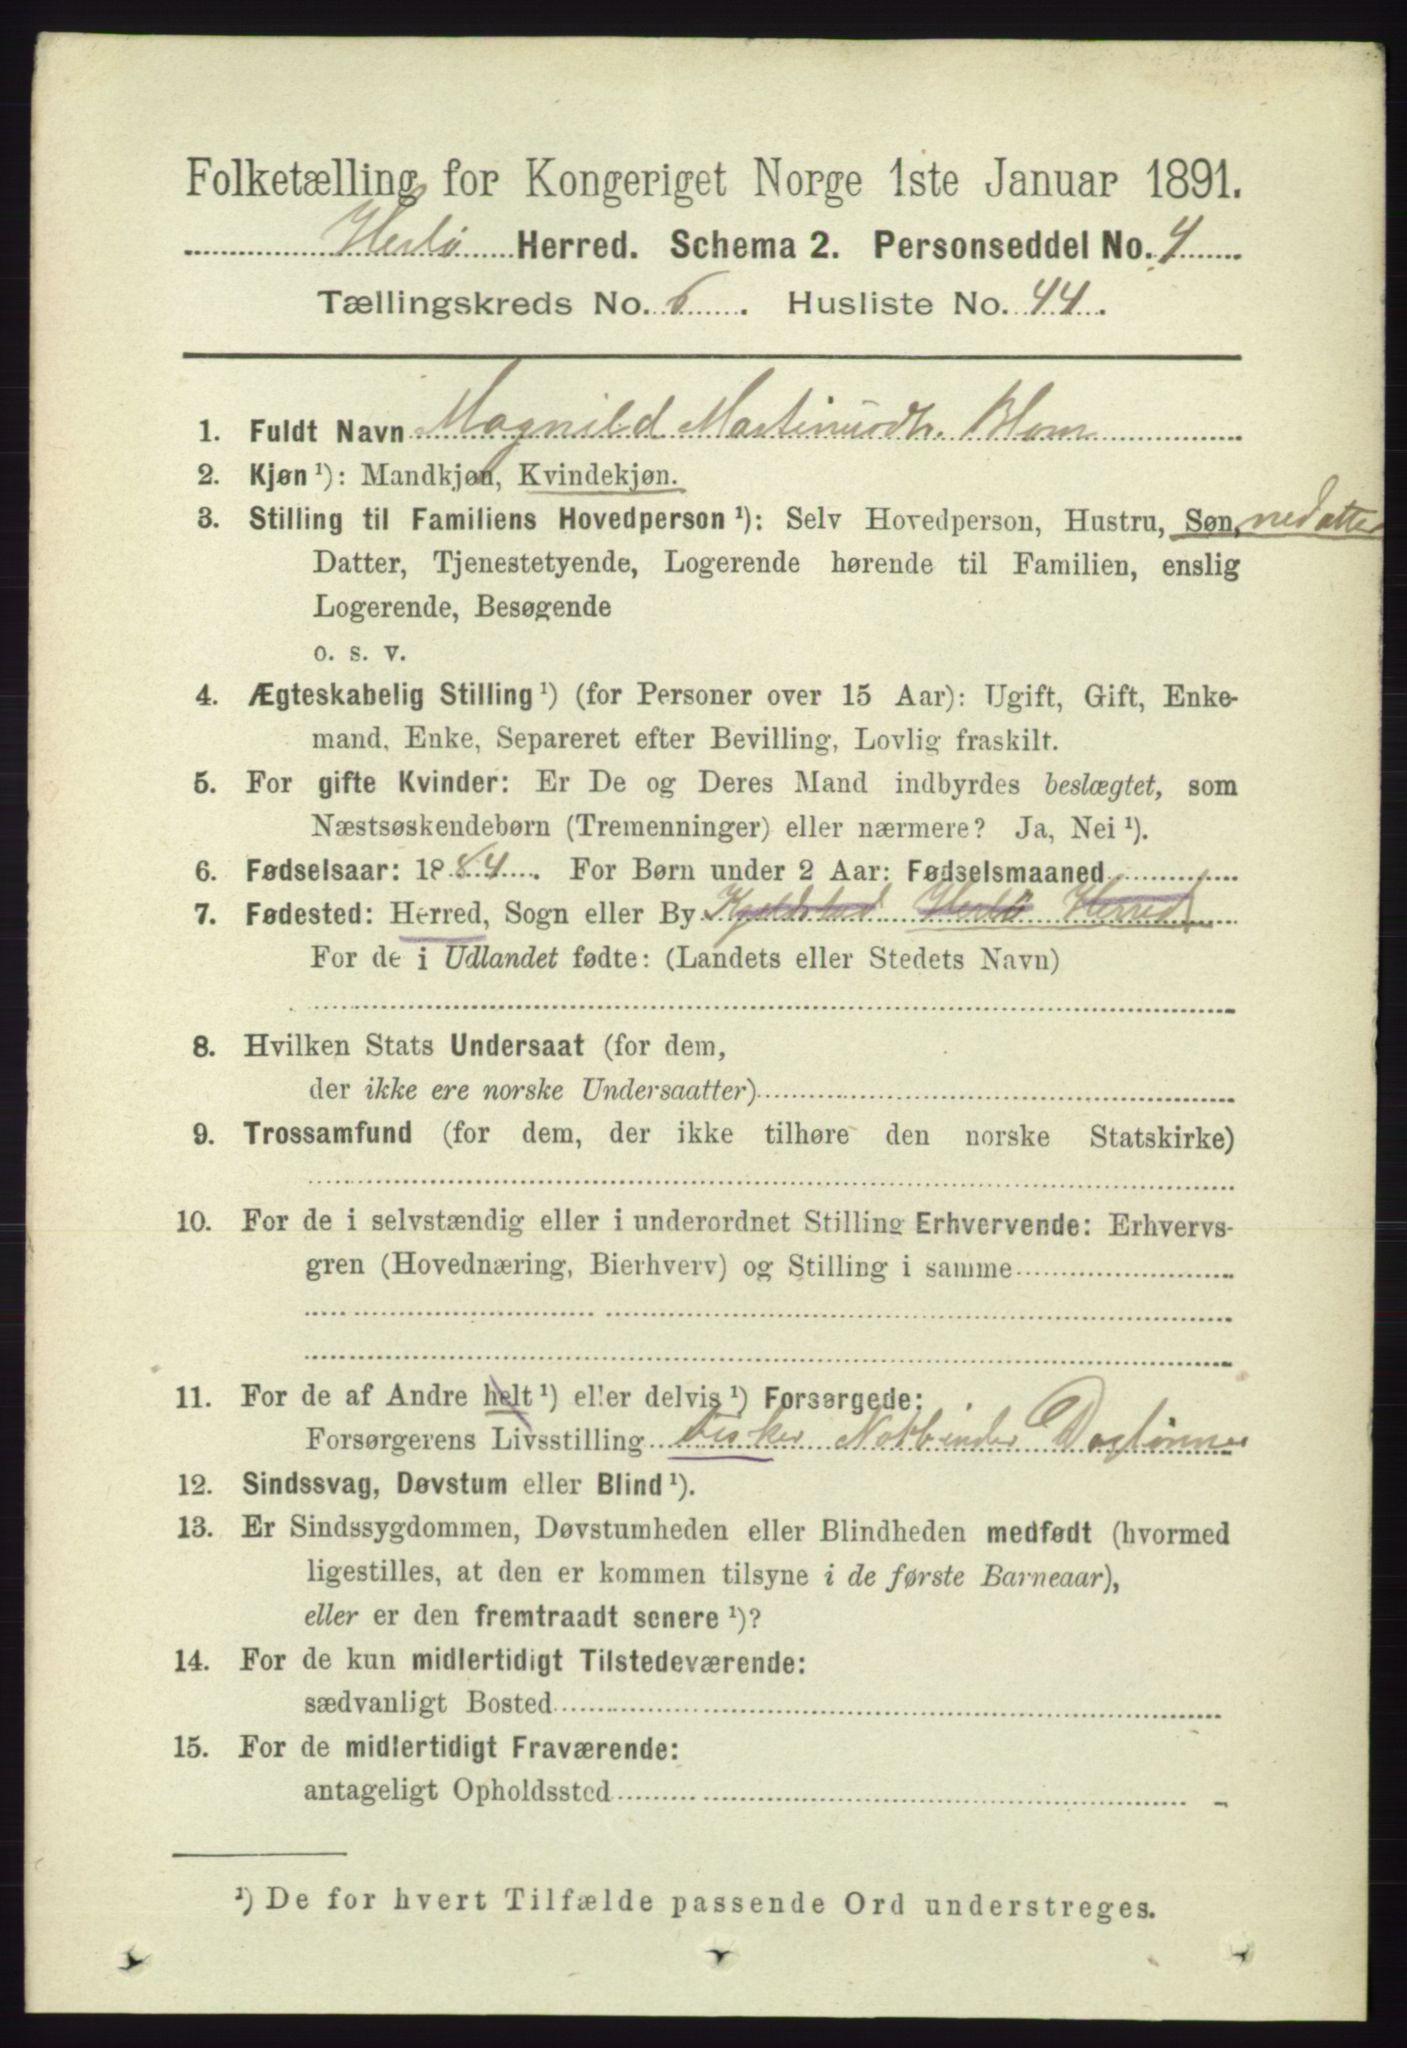 Folketælling for Kongeriget Norge 1ste Januar 1891.
Herlø Herred. Schema 2. Personseddel No. 4
Tællingskreds No. 6. Husliste No. 44.
1. Fuldt Navn Magnild Martinusdtr. Blom
2. Kjøn ¹): Mandkjøn, Kvindekjøn.
3. Stilling til Familiens Hovedperson ¹): Selv Hovedperson, Hustru, Søn, nedatter
Datter, Tjenestetyende, Logerende hørende til Familien, enslig
Logerende, Besøgende
o. s. v.
4. Ægteskabelig Stilling ¹) (for Personer over 15 Aar): Ugift, Gift, Enke-
mand, Enke, Separeret efter Bevilling, Lovlig fraskilt.
5. For gifte Kvinder: Er De og Deres Mand indbyrdes beslægtet, som
Næstsøskendebørn (Tremenninger) eller nærmere? Ja, Nei ¹).
6. Fødselsaar: 1884. For Børn under 2 Aar: Fødselsmaaned
7. Fødested: Herred, Sogn eller By Herlø Herred
For de i Udlandet fødte: (Landets eller Stedets Navn)
8. Hvilken Stats Undersaat (for dem,
der ikke ere norske Undersaatter)
9. Trossamfund (for dem, der ikke tilhøre den norske Statskirke)
10. For de i selvstændig eller i underordnet Stilling Erhvervende: Erhvervs-
gren (Hovednæring, Bierhverv) og Stilling i samme
11. For de af Andre helt ¹) eller delvis ¹) Forsørgede:
Forsørgerens Livsstilling Fisker Notbinder Daglønner
12. Sindssvag, Døvstum eller Blind ¹).
13. Er Sindssygdommen, Døvstumheden eller Blindheden medfødt (hvormed
ligestilles, at den er kommen tilsyne i de første Barneaar),
eller er den fremtraadt senere ¹)?
14. For de kun midlertidigt Tilstedeværende:
sædvanligt Bosted
15. For de midlertidigt Fraværende:
antageligt Opholdssted
¹) De for hvert Tilfælde passende Ord understreges.